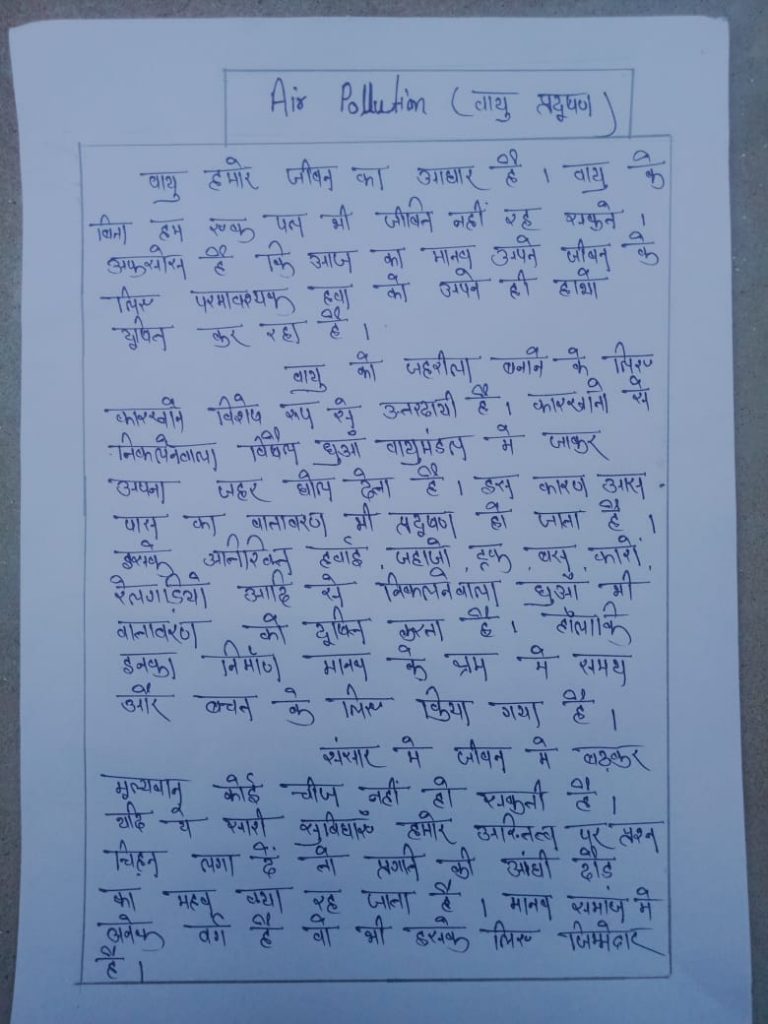 Air Pollution (वायु प्रदूषण)
वायु हमारे जीवन का आधार है । वायु के
बिना हम एक पल भी जीवित नहीं रह सकते ।
अफसोस है कि आज का मानव अपने जीवन के
लिए परमावश्यक हवा को अपने ही हाथो
दूषित कर रहा है ।
वायु को जहरीला बनाने के लिए
कारखाने विशेष रूप से उत्तरदायी है । कारखानो से
निकलनेवाला विषैल धुआं वायुमंडल मे जाकर
अपना जहर घोल देता है । इस कारण आस -
पास का वातावरण भी प्रदूषण हो जाता है ।
इसके अतिरिक्त हवाई जहाजो, ट्रक, बस, कारो,
रेलगाडियो आदि से निकलनेवाला धुआँ भी
वातावरण को दूषित करता है । हॉलाकि
इनका निर्माण मानव के श्रम मे समय
और बचन के लिए किया गया है ।
संसार मे जीवन मे बढ़कर
मूल्यवान कोई चीज नहीं हो सकती है ।
यदि ये सारी सुविधाएं हमारे अस्तित्व पर प्रश्न
चिहन लगा दें तो प्रगति की आंधी दौड
का महत्व क्या रह जाता है । मानव समाज मे
अनेक वर्ग है वो भी इसके लिए जिम्मेदार
है ।